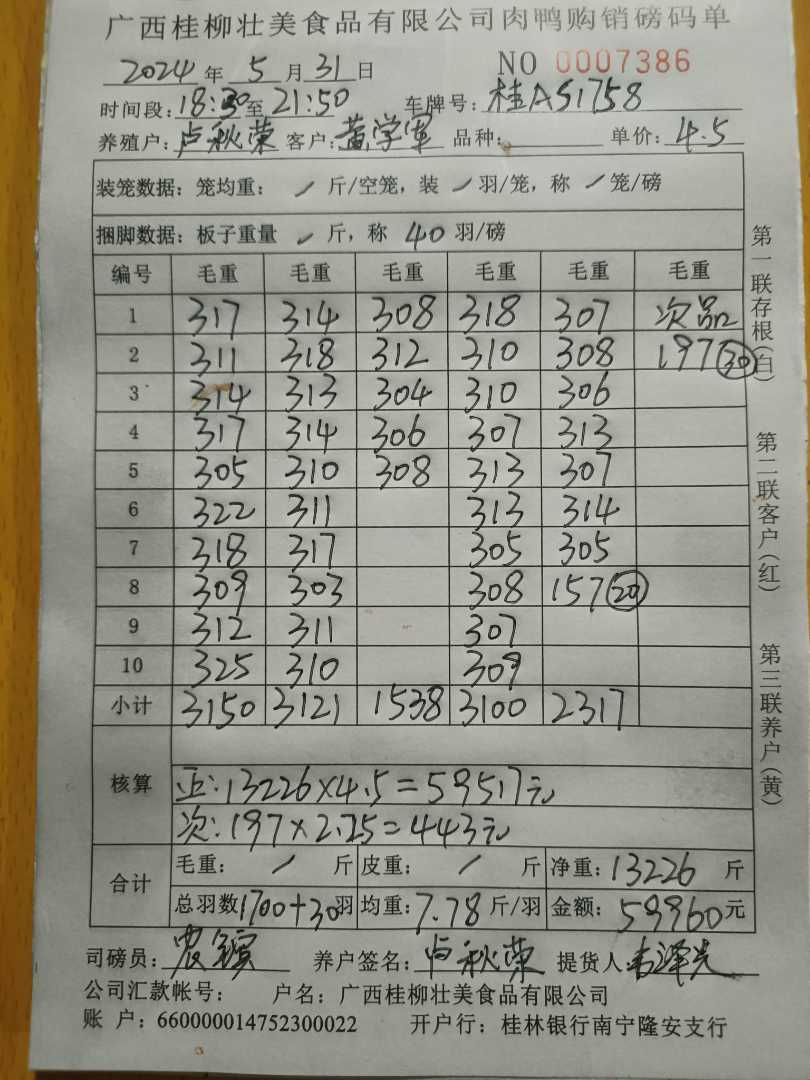 广西桂柳壮美食品有限公司肉鸭购销磅码单
2024年 5月31日 NO 0007386
时间段:18:30至21:50 车牌号:桂AS1758
养殖户:卢秋荣 客户:黄学军 品种: 单价:4.5
装笼数据:笼均重: / 斤/空笼,装 / 羽/笼,称 / 笼/磅
捆脚数据:板子重量 / 斤,称 40 羽/磅
编号 毛重 毛重 毛重 毛重 毛重 毛重
1 317 314 308 318 307 次品
2 311 318 312 310 308 197(30)
3 314 313 304 310 306
4 317 314 306 307 313
5 305 310 308 313 307
6 322 311 313 314
7 318 317 305 305
8 309 303 308 157(20)
9 312 311 307
10 325 310 309
小计 3150 3121 1538 3100 2317
核算
正:13226×4.5=59517元
次:197×2.25=443元
合计
毛重: / 斤 皮重: / 斤 净重:13226 斤
总羽数1700+30羽 均重:7.78斤/羽 金额:59960元
司磅员: 养户签名:卢秋荣 提货人:
公司汇款帐号: 户名:广西桂柳壮美食品有限公司
账 户:660000014752300022 开户行:桂林银行南宁隆安支行
第一联存根(白)
第二联客户(红)
第三联养户(黄)